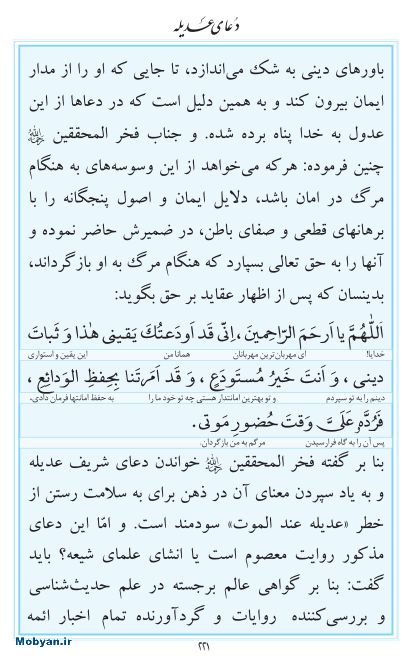 دُعای عَدیله
باورهای دینی به شک می‌اندازد، تا جایی که او را از مدار
ایمان بیرون کند و به همین دلیل است که در دعاها از این
عدول به خدا پناه برده شده. و جناب فخر المحققین ﷫
چنین فرموده: هرکه می‌خواهد از این وسوسه‌های به هنگام
مرگ در امان باشد، دلایل ایمان و اصول پنجگانه را با
برهانهای قطعی و صفای باطن، در ضمیرش حاضر نموده و
آنها را به حق تعالی بسپارد که هنگام مرگ به او بازگرداند،
بدینسان که پس از اظهار عقاید بر حق بگوید:
اَللّٰهُمَّ یا اَرحَمَ الرّاحِمینَ ، اِنّی قَد اَودَعتُكَ یَقینی هٰذا وَ ثَباتَ
خدایا! ای مهربان‌ترین مهربانان همانا من این یقین و استواری
دینی ، وَ اَنتَ خَیرُ مُستَودَعٍ ، وَ قَد اَمَرتَنا بِحِفظِ الوَدائِعِ ،
دینم را به تو سپردم و تو بهترین امانتدار هستی چه تو خود ما را به حفظ امانتها فرمان دادی،
فَرُدَّهُ عَلَیَّ وَقتَ حُضورِ مَوتی.
پس آن را به گاه فرارسیدن مرگم به من بازگردان.
بنا بر گفته فخر المحققین ﷫ خواندن دعای شریف عدیله
و به یاد سپردن معنای آن در ذهن برای به سلامت رستن از
خطر «عدیله عند الموت» سودمند است. و امّا این دعای
مذکور روایت معصوم است یا انشای علمای شیعه؟ باید
گفت: بنا بر گواهی عالم برجسته در علم حدیث‌شناسی
و بررسی‌کننده روایات و گردآورنده تمام اخبار ائمه
۲۲۱
Mobyan.ir